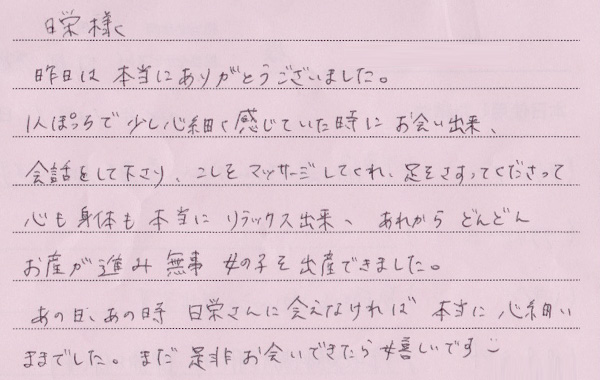 日栄様へ
昨日は 本当にありがとうございました。
1人ぽっちで 少し心細く感じていた時に お会い出来、
会話をして下さり、こしを マッサージしてくれ、足をさすってくださって
心も 身体も 本当に リラックス出来、 あれから どんどん
お産が進み 無事 女の子を出産できました。
あの日、あの時 日栄さんに会えなければ 本当に 心細い
ままでした。まだ 是非 お会いできたら 嬉しいです